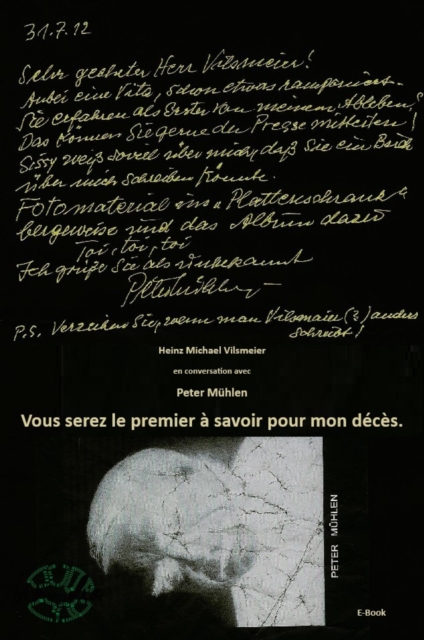 31.7.12
Sehr geehrter Herr Vilsmeier!
Anbei eine Vita, schon etwas ramponiert.
Sie erfahren als Erster von meinem Ableben,
Das können Sie gerne der Presse mitteilen!
Sissy weiß soviel über mich, daß Sie ein Buch
über mich schreiben könnte.
Fotomaterial im "Plattenschrank"
bergeweise und das Album dazu
Toi, toi, toi
Ich grüße Sie als unbekannt
P.S. Verzeihen Sie, wenn man Vilsmaier (?) anders
schreibt!
Heinz Michael Vilsmeier
en conversation avec
Peter Mühlen
Vous serez le premier à savoir pour mon décès.
PETER MÜHLEN
E-Book